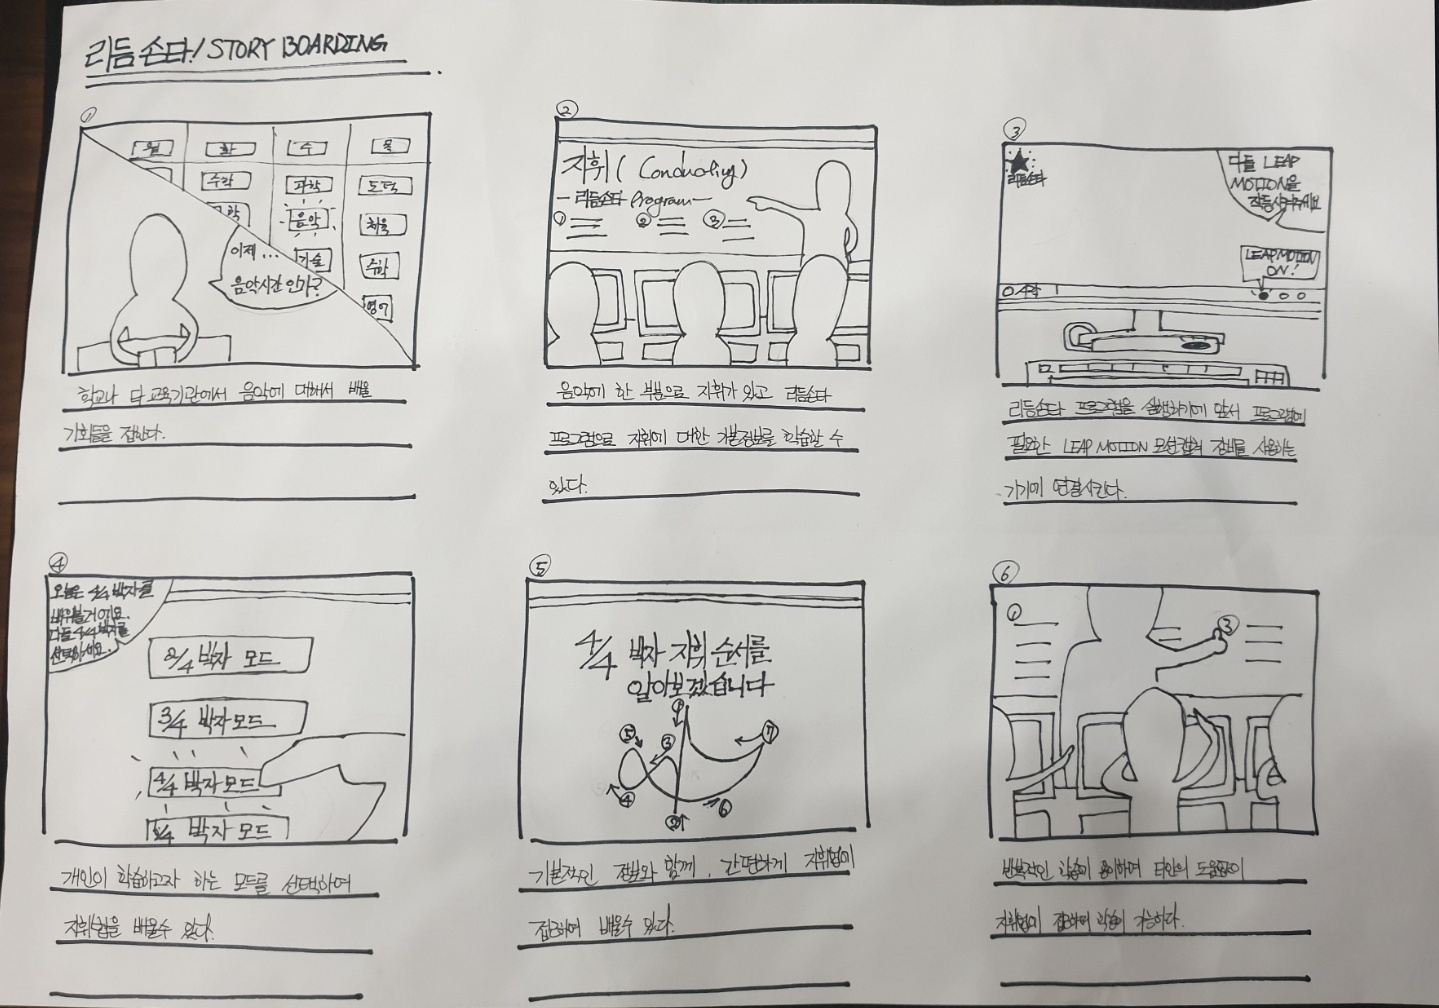 리듬손타! STORY BOARDING
①
월 화 수 목
수학 과학 도덕
과학 음악 체육
기술 수학
영어
이제...
음악시간인가?
학교나 타 교육기관에서 음악에 대해서 배울
기회들을 접한다.
②
지휘( Conducting)
- 리듬손타 Program -
① ② ③
음악에 한 부분으로 지휘가 있고 리듬손타
프로그램으로 지휘에 대한 기본정보를 학습할 수
있다.
③
리듬손타
다들 LEAP
MOTION을
작동시켜주세요
LEAP MOTION
ON!
리듬손타 프로그램을 실행하기에 앞서 프로그램에
필요한 LEAP MOTION 모션캡쳐 장비를 사용하는
기기에 연결시킨다.
④
오늘은 4/4 박자를
배워볼거에요.
다들 4/4 박자를
선택하세요.
2/4 박자 모드
3/4 박자 모드
4/4 박자 모드
/4 박자 모드
개인이 학습하고자 하는 모드를 선택하여
지휘법을 배울수 있다.
⑤
4/4 박자 지휘 순서를
알아보겠습니다
① ⑤ ③ ⑦
④ ② ⑥
기본적인 정보와 함께, 간편하게 지휘법에
접근하여 배울수 있다.
⑥
① ③
반복적인 학습이 용이하며 타인의 도움없이
지휘법에 접근하여 학습이 가능하다.